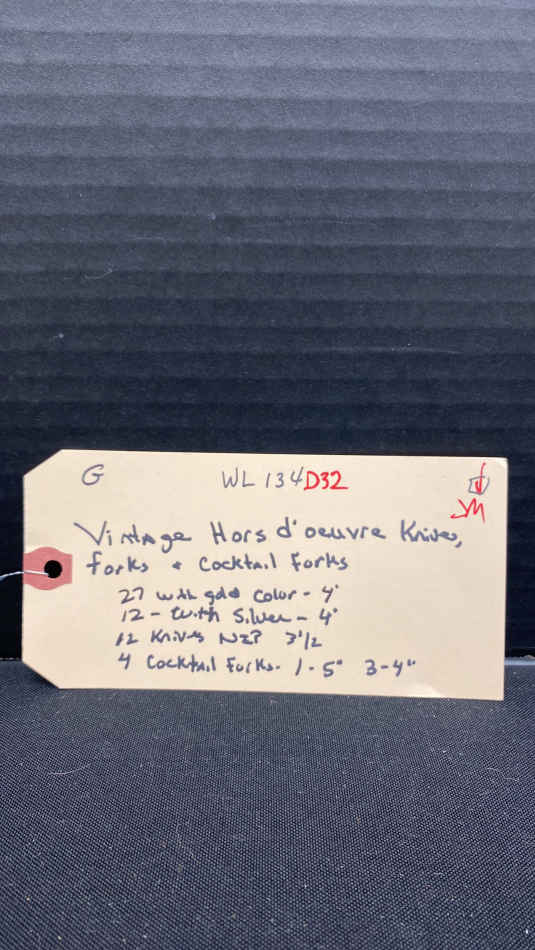 G WL 134 D32
JM
Vintage Hors d'oeuvre Knives,
forks & Cocktail Forks
27 with gold color - 4"
12 - with Silver - 4"
12 Knives 3 1/2
4 Cocktail Forks - 1 - 5" 3 - 4"